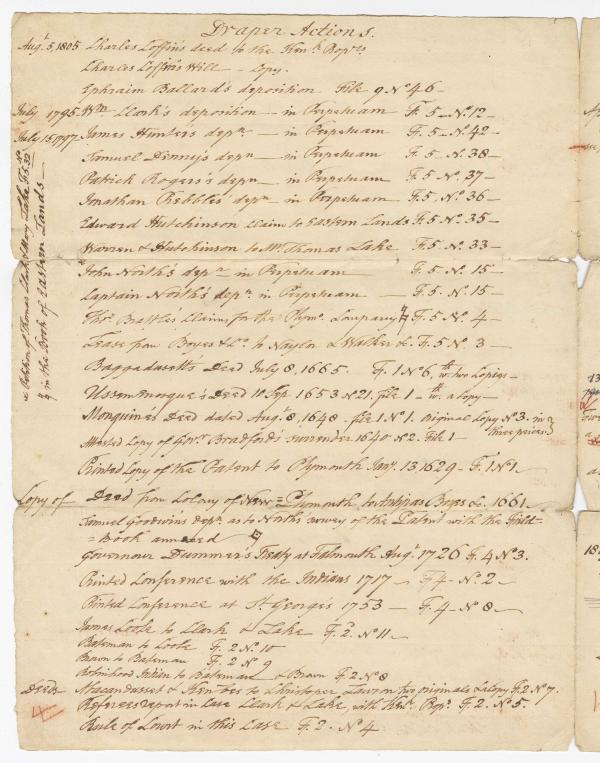 Draper Actions.
Augt. 5, 1805 Charles Coffin's deed to the Kenk. Proprs.
Charles Coffin's Will — Copy.
Ephraim Ballard's deposition File 9 No 46 —
July 1795 Wm. Clark's deposition — in Perpetuam F. 5 — No. 12
July 15, 1797 James Hunter's depn — in Perpetuam F. 5 — No. 42 —
Samuel Denny's depn — in Perpetuam F. 5 — No. 38 —
Patrick Rogers's depn — in Perpetuam F. 5 — No. 37 —
Jonathan Preble's depn in Perpetuam F. 5 — No. 36 —
Edward Hutchinson Claim to Eastern Lands F. 5 — No. 35 —
Warren & Hutchinson to Mr. Thomas Lake F. 5 — No. 33 —
John North's depn in Perpetuam — F. 5 — No. 15 —
Captain North's depn. in Perpetuam — F. 5 — No. 15 —
Thos. Brattle's Claims for the Plymo. Company F. 5 — No. 4 —
Lease from Boyes & Co. to Naylor & Walker &c. F. 5 — No. 3 —
Baggadusett's Deed July 8, 1665. F. 1 No 6, wth. two Copies —
Deed 10 Sep. 1653 No 21. file 1 — wth. a Copy —
Monquines Deed dated Augt. 8, 1648. file 1 No 1. Original Copy No 3. in
three pieces
Attested Copy of Govr. Bradford's surrender 1640 No 2. File 1 —
Printed Copy of the Patent to Plymouth Jany. 13 1629 — F. 1 No 1 —
Copy of Deed from Colony of New=Plymouth to Antipas Boyes &c. 1661 —
Samuel Goodwins depn. as to North's survey of the Patent with the Field
=Book annexed
Governour Dummer's Treaty at Falmouth Augt. 1726 F. 4 No 3.
Printed Conference with the Indians 1717 — F 4 — No. 2 —
Printed Conference at St. George's 1753 — F. 4 — No 8 —
James Cooke to Clark & Lake F. 2. No. 11 —
Bateman to Cooke F. 2 No. 10
Brown to Bateman F. 2 No 9
Robinhood Indian to Bateman & Brown F. 2 No 8
Deeds to Christopher Lawson two originals & a Copy F. 2 No 7.
4 Referees report in Case Clark & Lake, with Kenk. Propr. F. 2. No 5.
Rule of Court in this Case F. 2. No 4.
Petition of Thomas Clark & Mary Lake F. 5. No 32
in the Book of Eastern Lands —